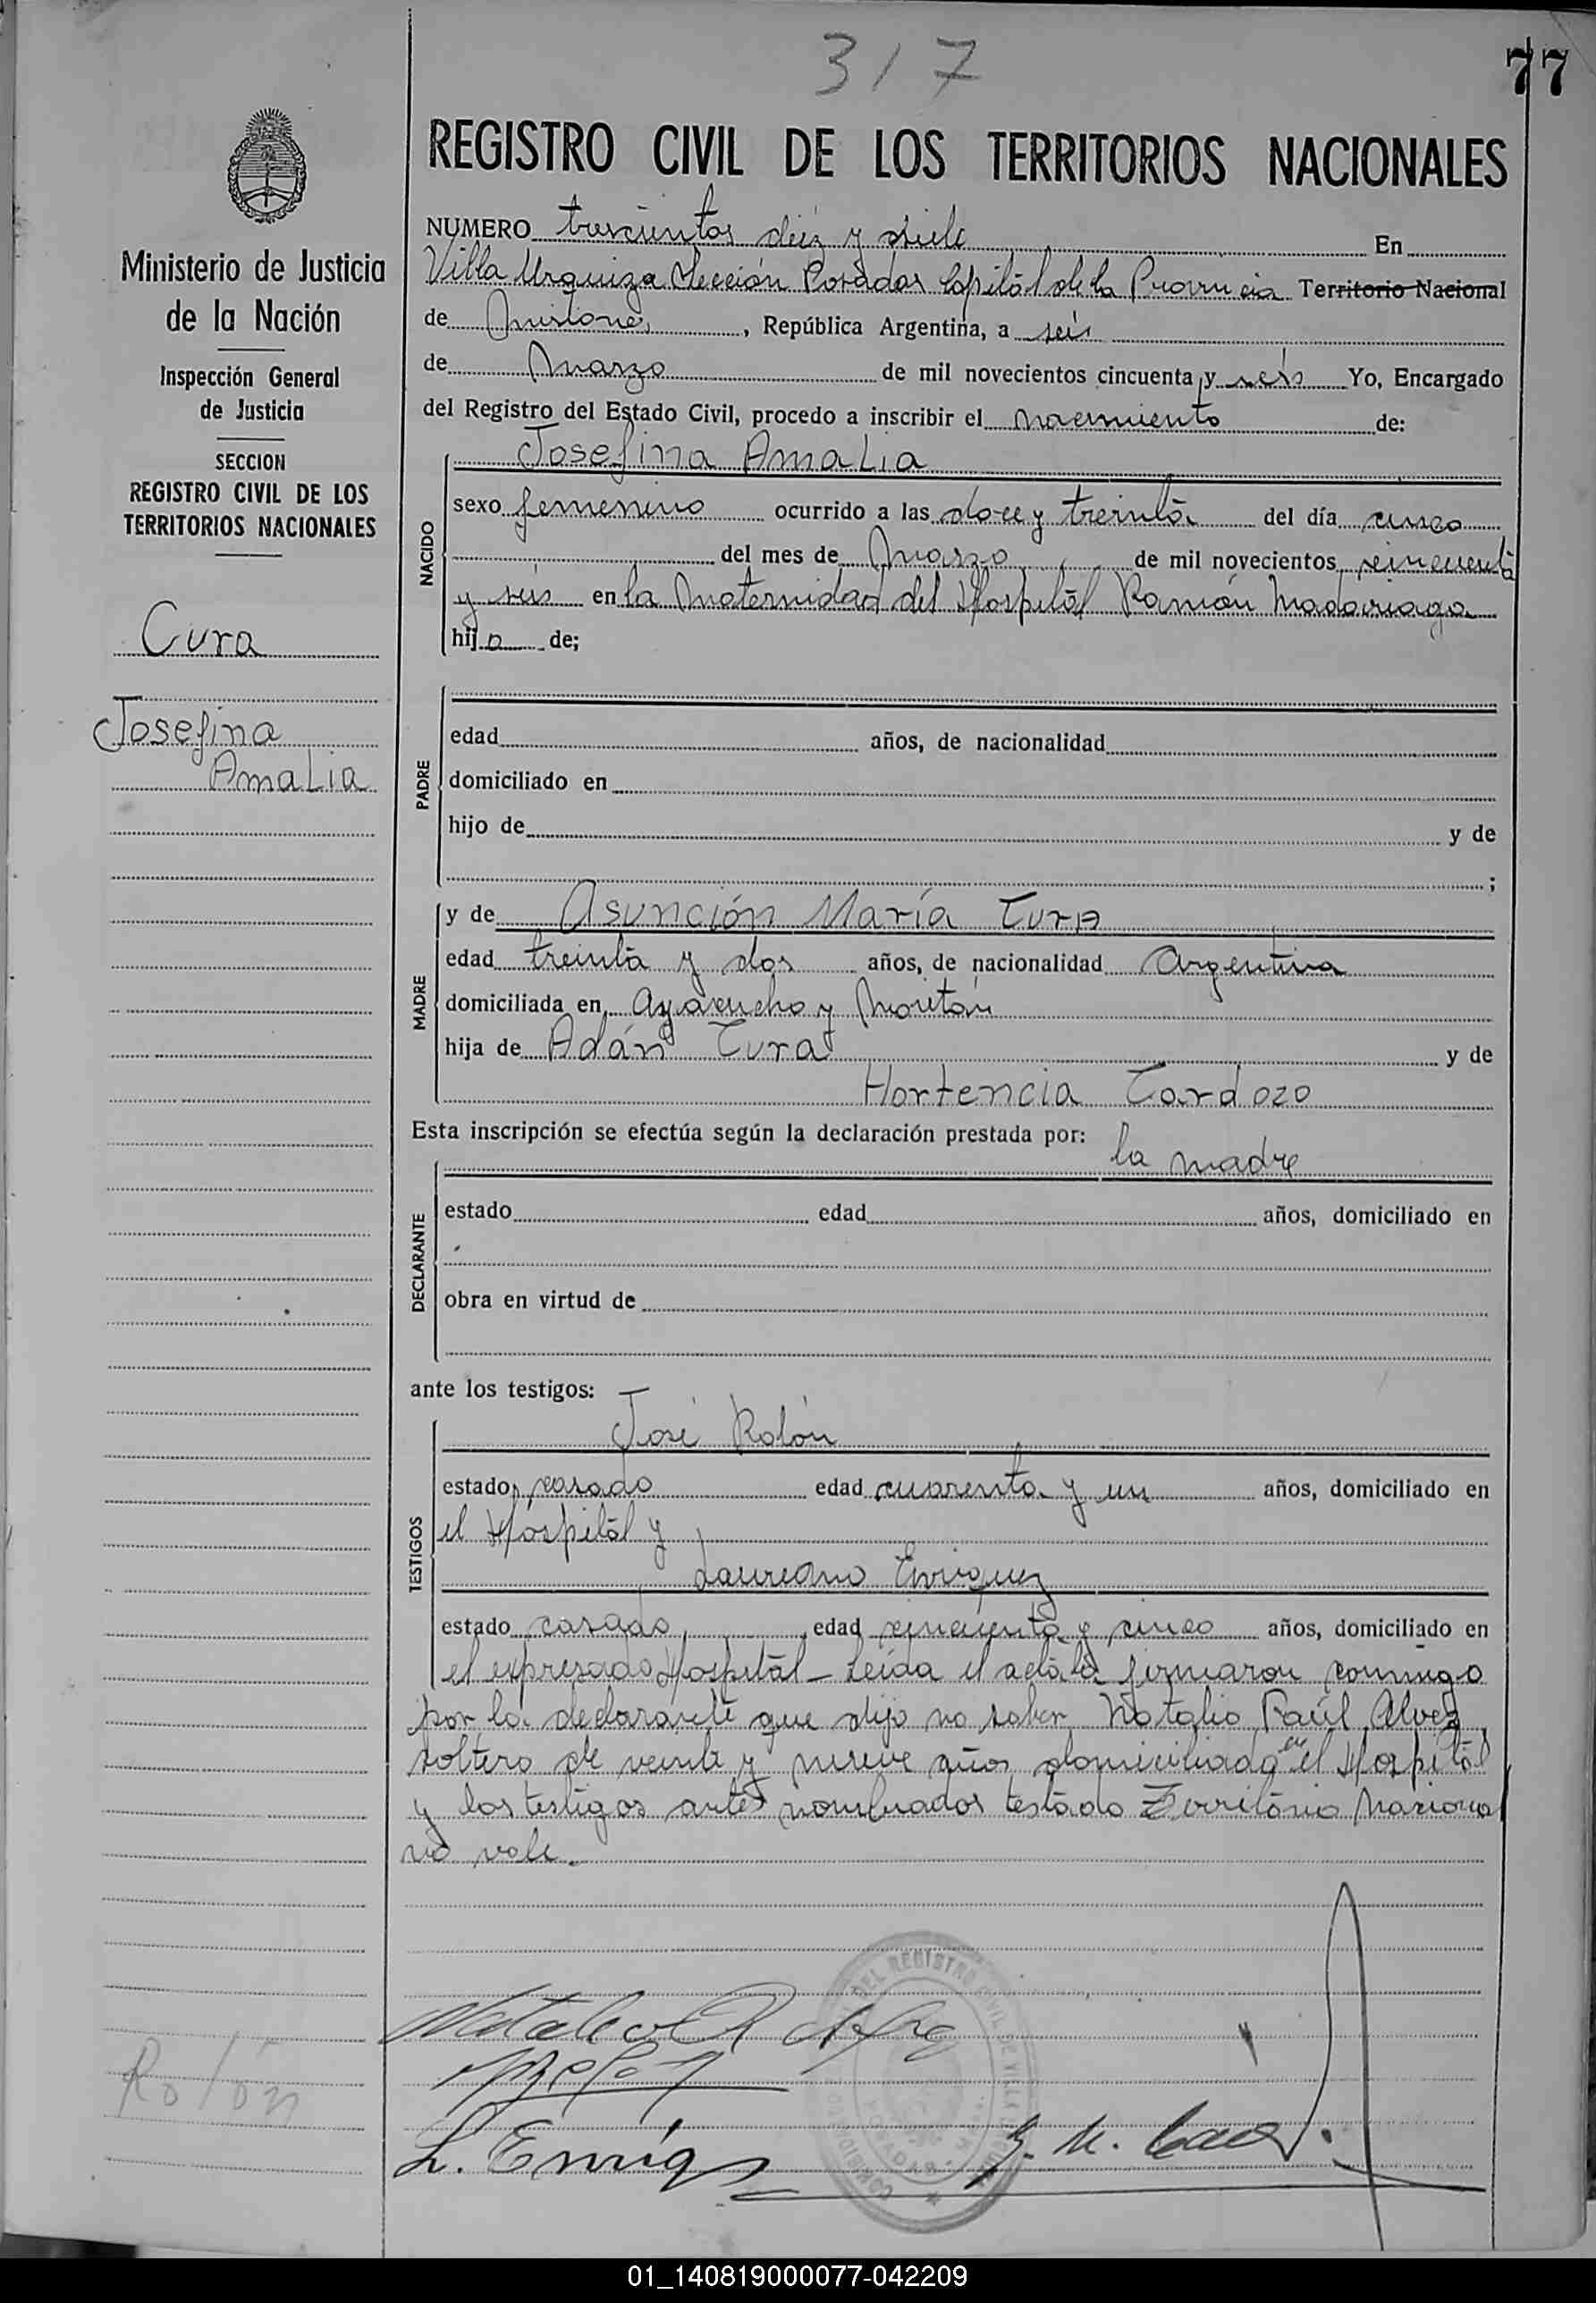 317
77
REGISTRO CIVIL DE LOS TERRITORIOS NACIONALES
Ministerio de Justicia
de la Nación
Inspección General
de Justicia
SECCION
REGISTRO CIVIL DE LOS
TERRITORIOS NACIONALES
Cura
Josefina
Amalia
NUMERO trescientos diéz y siete En
Villa Urquiza Sección Posadas Capital de la Provincia Territorio Nacional
de Misiones, República Argentina, a seis
de Marzo de mil novecientos cincuenta y seis Yo, Encargado
del Registro del Estado Civil, procedo a inscribir el nacimiento de:
NACIDO
Josefina Amalia
sexo femenino ocurrido a las doce y treinta del día cinco
del mes de Marzo de mil novecientos cincuenta
y seis en la Maternidad del Hospital Ramón Madariaga
hija de;
PADRE
edad años, de nacionalidad
domiciliado en
hijo de y de
;
MADRE
y de Asunción María Cura
edad treinta y dos años, de nacionalidad Argentina
domiciliada en Ayacucho y Moritán
hija de Adán Cura y de
Hortencia Cardozo
Esta inscripción se efectúa según la declaración prestada por:
la madre
DECLARANTE
estado edad años, domiciliado en
obra en virtud de
ante los testigos:
TESTIGOS
José Rolón
estado casado edad cuarenta y un años, domiciliado en
el Hospital y
Laureano Enriquez
estado casado, edad cincuenta y cinco años, domiciliado en
el expresado Hospital - Leída el acta la firmaron conmigo
por la declarante que dijo no saber Natalio Raúl Alvez
soltero de veinte y nueve años domiciliado en el Hospital
y los testigos antes nombrados testado Territorio Nacional
no vale.
Rolón
L. Enriq
01_140819000077-042209